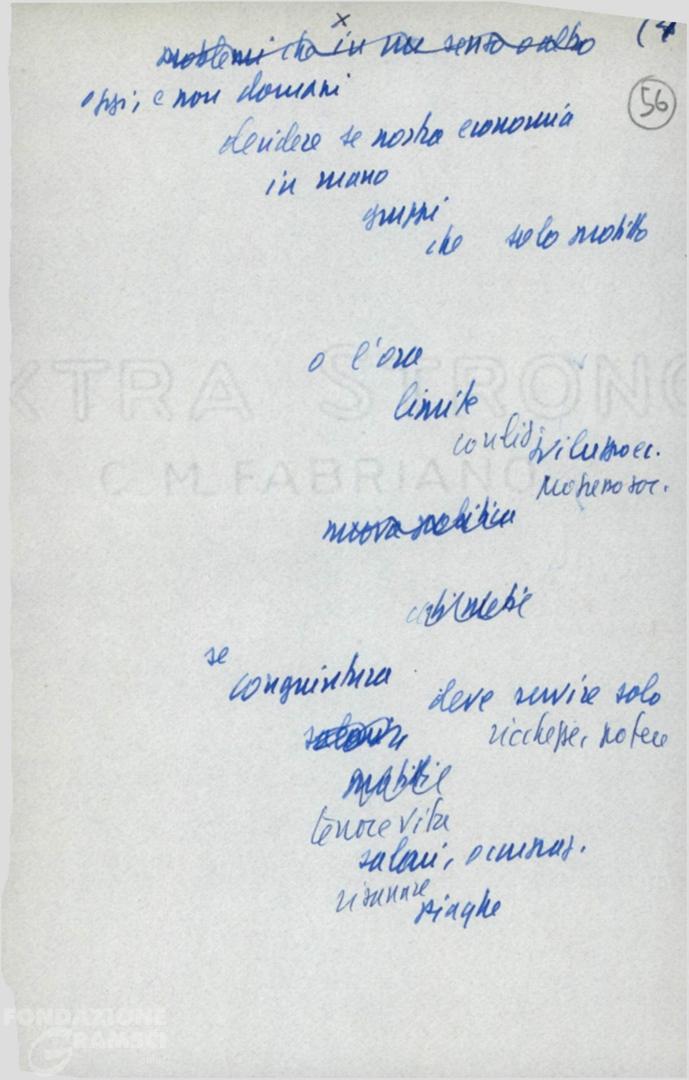 x
(4
problemi che in un senso o altro
56
oggi, e non domani
decidere se nostra economia
in mano
gruppi
che solo profitto
o l'ora
limite
sviluppo ec.
progresso soc.
nuova politica
se
congiuntura
deve servire solo
ricchezze, potere
salari
profitti
tenore vita
salari, occupaz.
risanare
piaghe
EXTRA STRONG
C M FABRIANO
FONDAZIONE
GRAMSCI